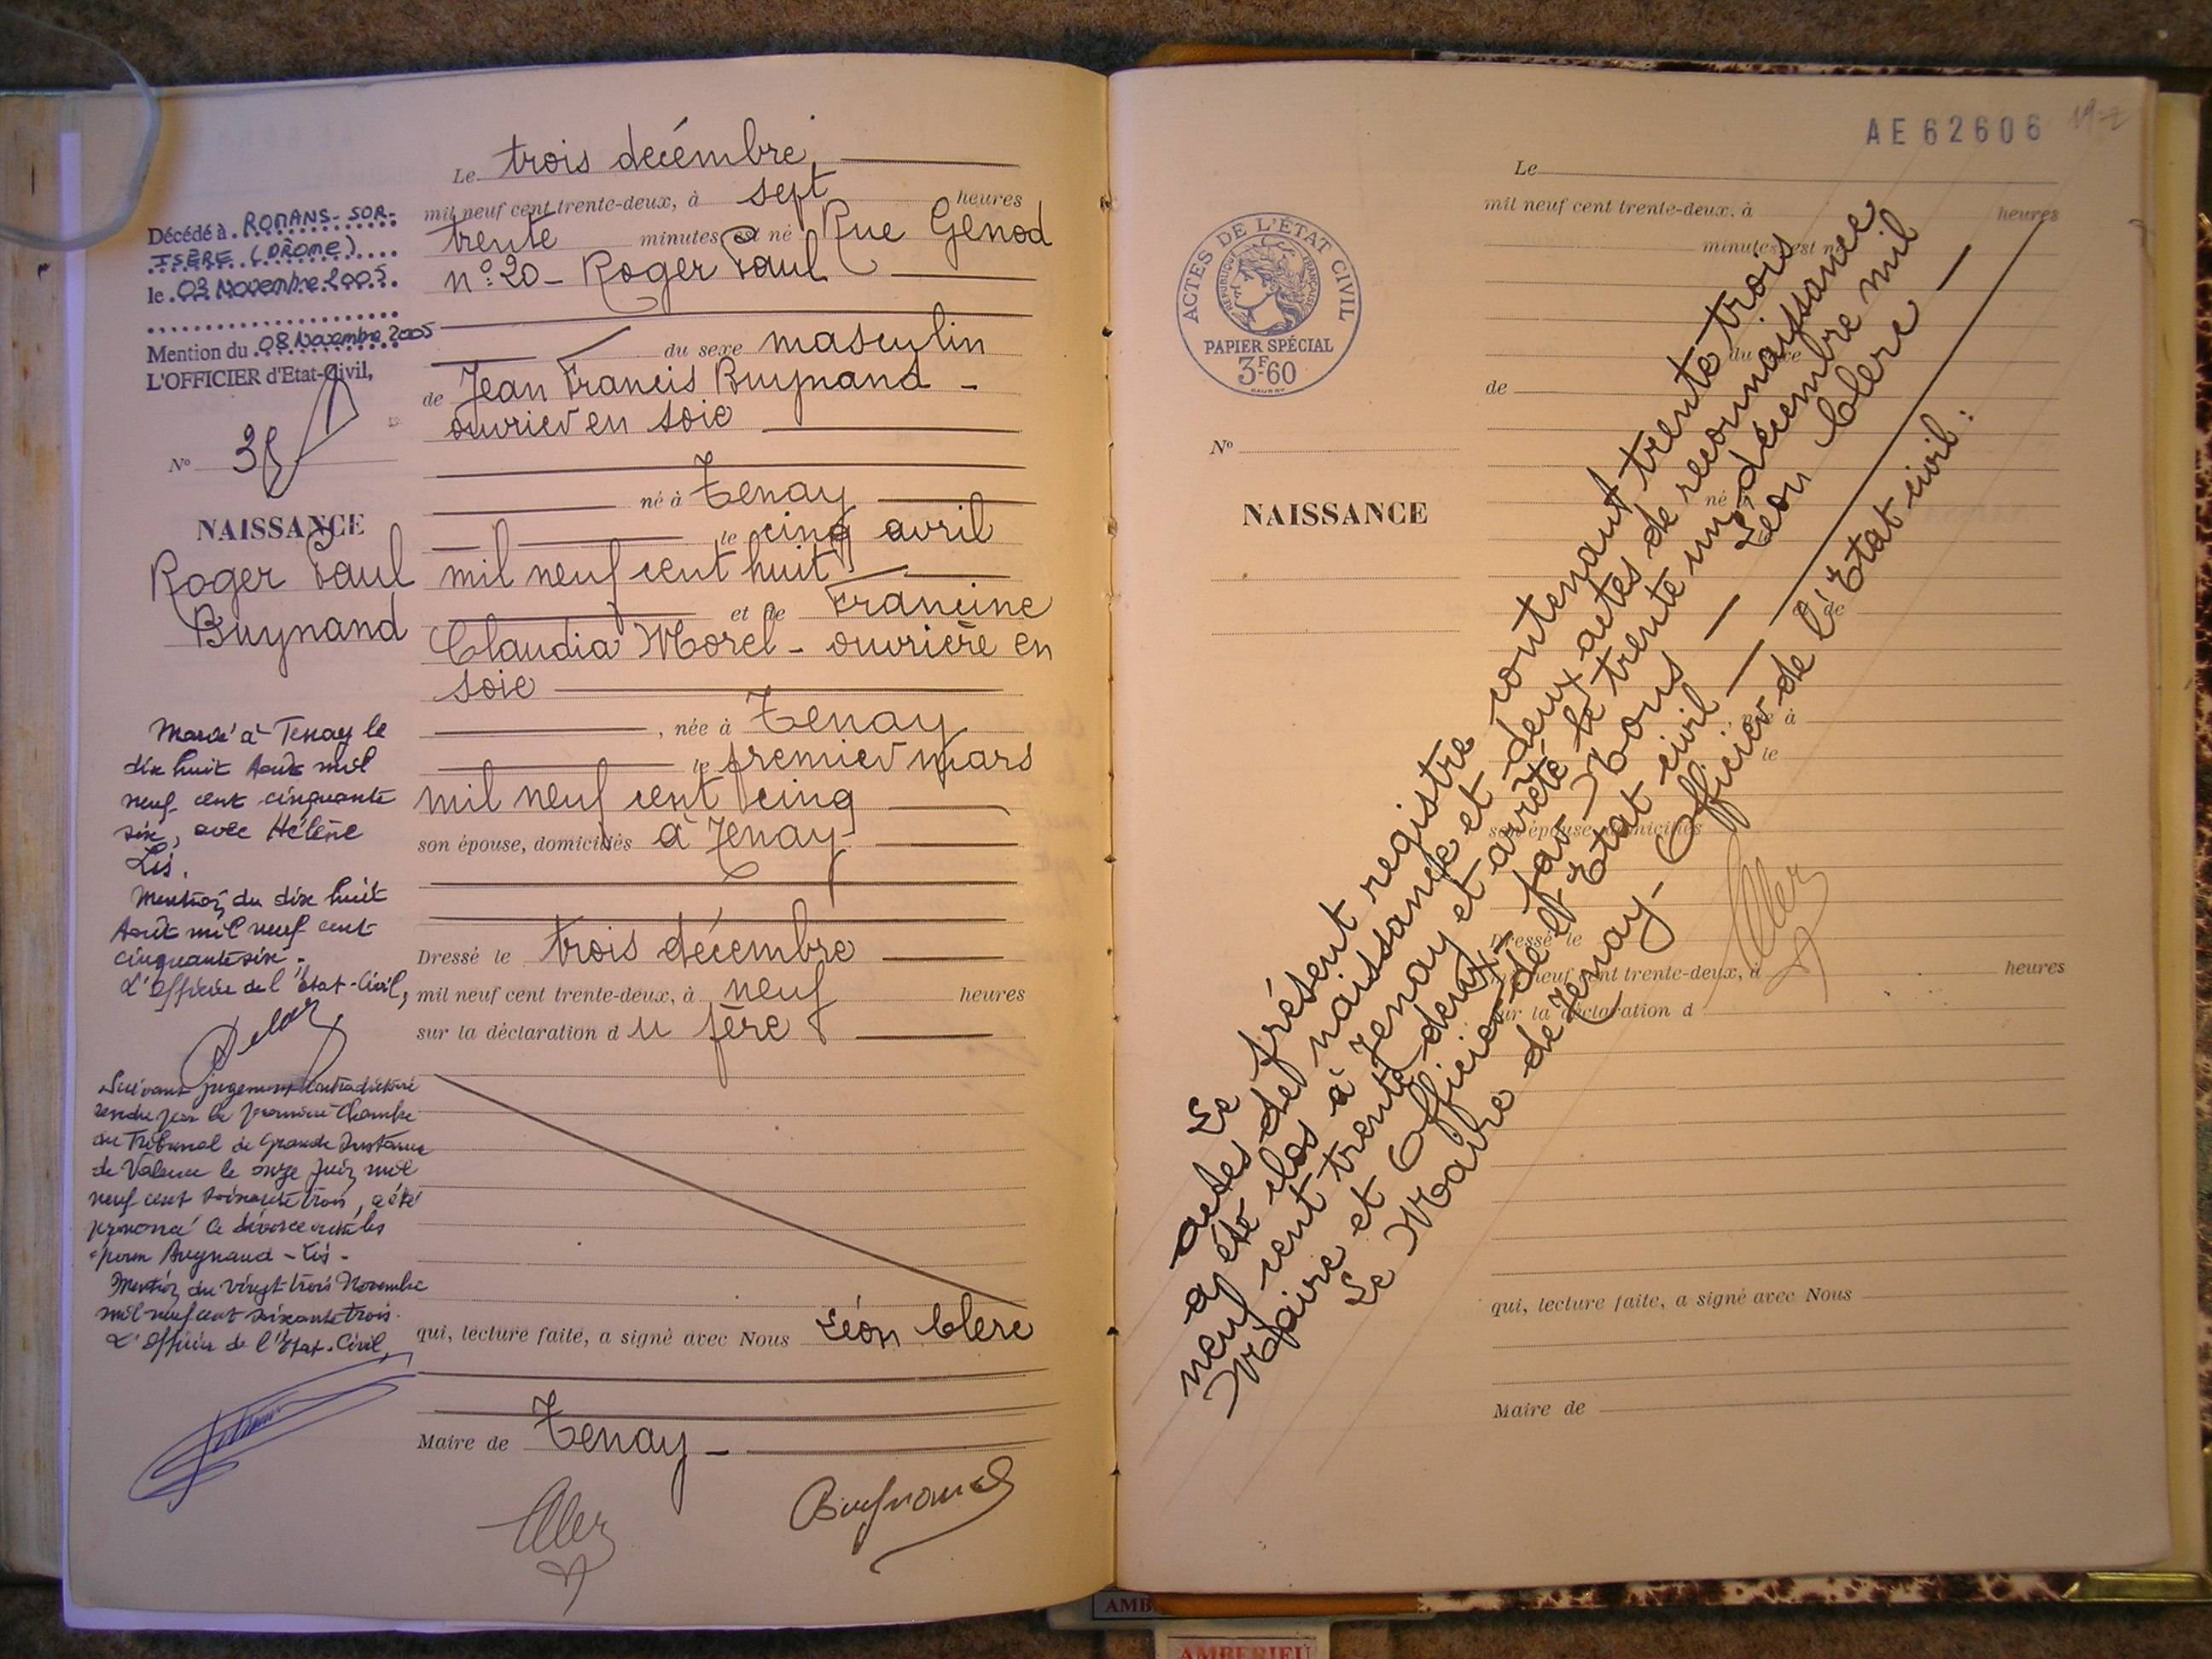 Le trois décembre,
mil neuf cent trente-deux, à sept heures
trente minutes est né Rue Genod
n° 20 - Roger Paul
du sexe masculin
de Jean Francis Buynand -
ouvrier en soie
né à Tenay
le cinq avril
mil neuf cent huit
et de Francine
Claudia Morel - ouvrière en
soie
, née à Tenay
le premier mars
mil neuf cent cinq
son épouse, domiciliés à Tenay
Dressé le trois décembre
mil neuf cent trente-deux, à neuf heures
sur la déclaration d u père
qui, lecture faite, a signé avec Nous Léon Clerc
Maire de Tenay -
Buynand
Décédé à ROMANS-SUR-
ISÈRE (DRÔME)
le 03 Novembre 2005
Mention du 08 Novembre 2005
L'OFFICIER d'Etat-Civil,
N°
NAISSANCE
Roger Paul
Buynand
Marié à Tenay le
dix huit Août mil
neuf cent cinquante
six, avec Hélène
Lis.
Mention du dix huit
Août mil neuf cent
cinquante six.
L'Officier de l'Etat-Civil,
Suivant jugement contradictoire
rendu par la première Chambre
du Tribunal de Grande Instance
de Valence le onze Juin mil
neuf cent soixante trois, a été
prononcé le divorce entre les
époux Buynand - Lis -
Mention du vingt trois Novembre
mil neuf cent soixante trois.
L'Officier de l'Etat-Civil,
AE 62606
ACTES DE L'ÉTAT CIVIL
RÉPUBLIQUE FRANÇAISE
PAPIER SPÉCIAL
3F60
N°
NAISSANCE
Le
mil neuf cent trente-deux, à heures
minutes est né
du sexe
de
né à
le
et de
, née à
le
son épouse, domiciliés
Dressé le
mil neuf cent trente-deux, à heures
sur la déclaration d
qui, lecture faite, a signé avec Nous
Maire de
Le présent registre contenant trente trois
actes de naissance et deux actes de reconnaissance
a été clos à Tenay et arrêté le trente un décembre mil
neuf cent trente deux - par Nous - Léon Clerc
Maire et Officier de l'Etat civil
Le Maire de Tenay - Officier de l'Etat civil :
AMB
AMBERIEU